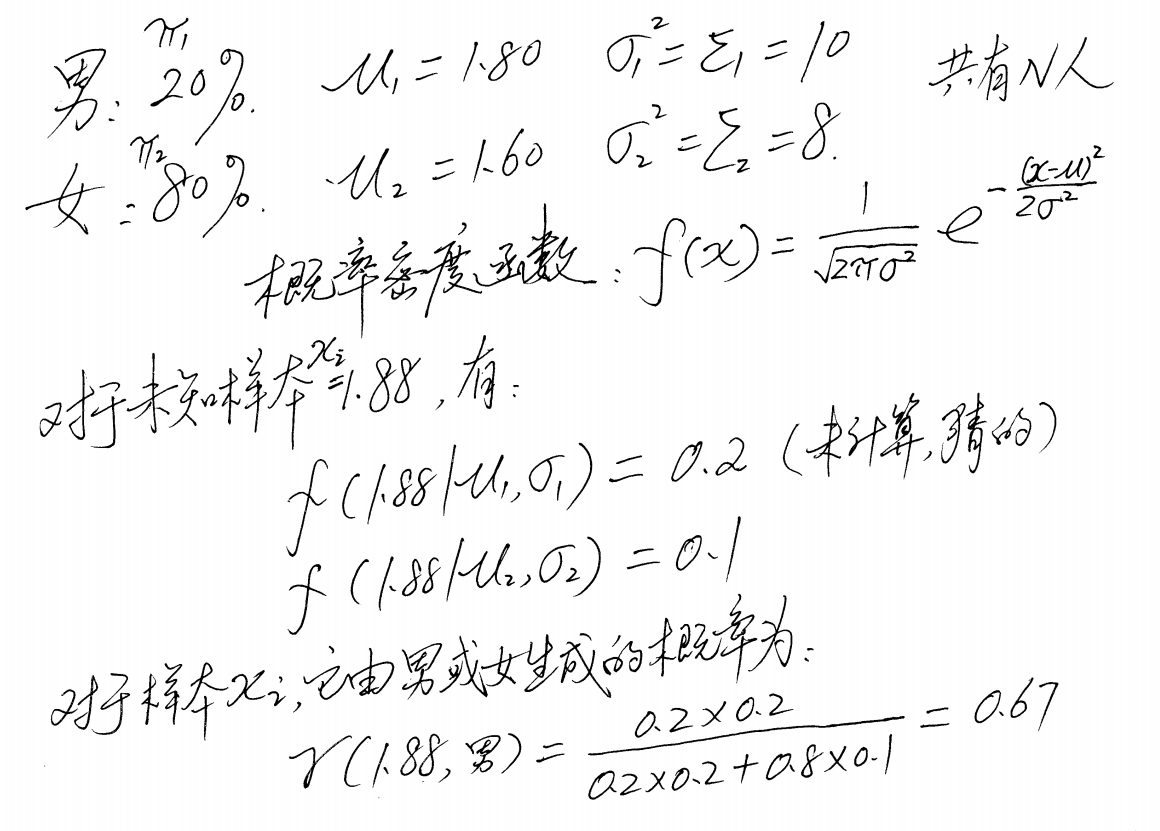 男: π₁ 20%. μ₁ = 1.80 σ₁² = Σ₁ = 10 共有N人
女: π₂ 80%. μ₂ = 1.60 σ₂² = Σ₂ = 8.
概率密度函数: f(x) = 1/√(2πσ²) e^(-(x-μ)²/(2σ²))
对于未知样本xᵢ=1.88,有:
f(1.88|μ₁,σ₁) = 0.2 (未计算,猜的)
f(1.88|μ₂,σ₂) = 0.1
对于样本xᵢ,它由男或女生成的概率为:
γ(1.88,男) = (0.2×0.2)/(0.2×0.2+0.8×0.1) = 0.67